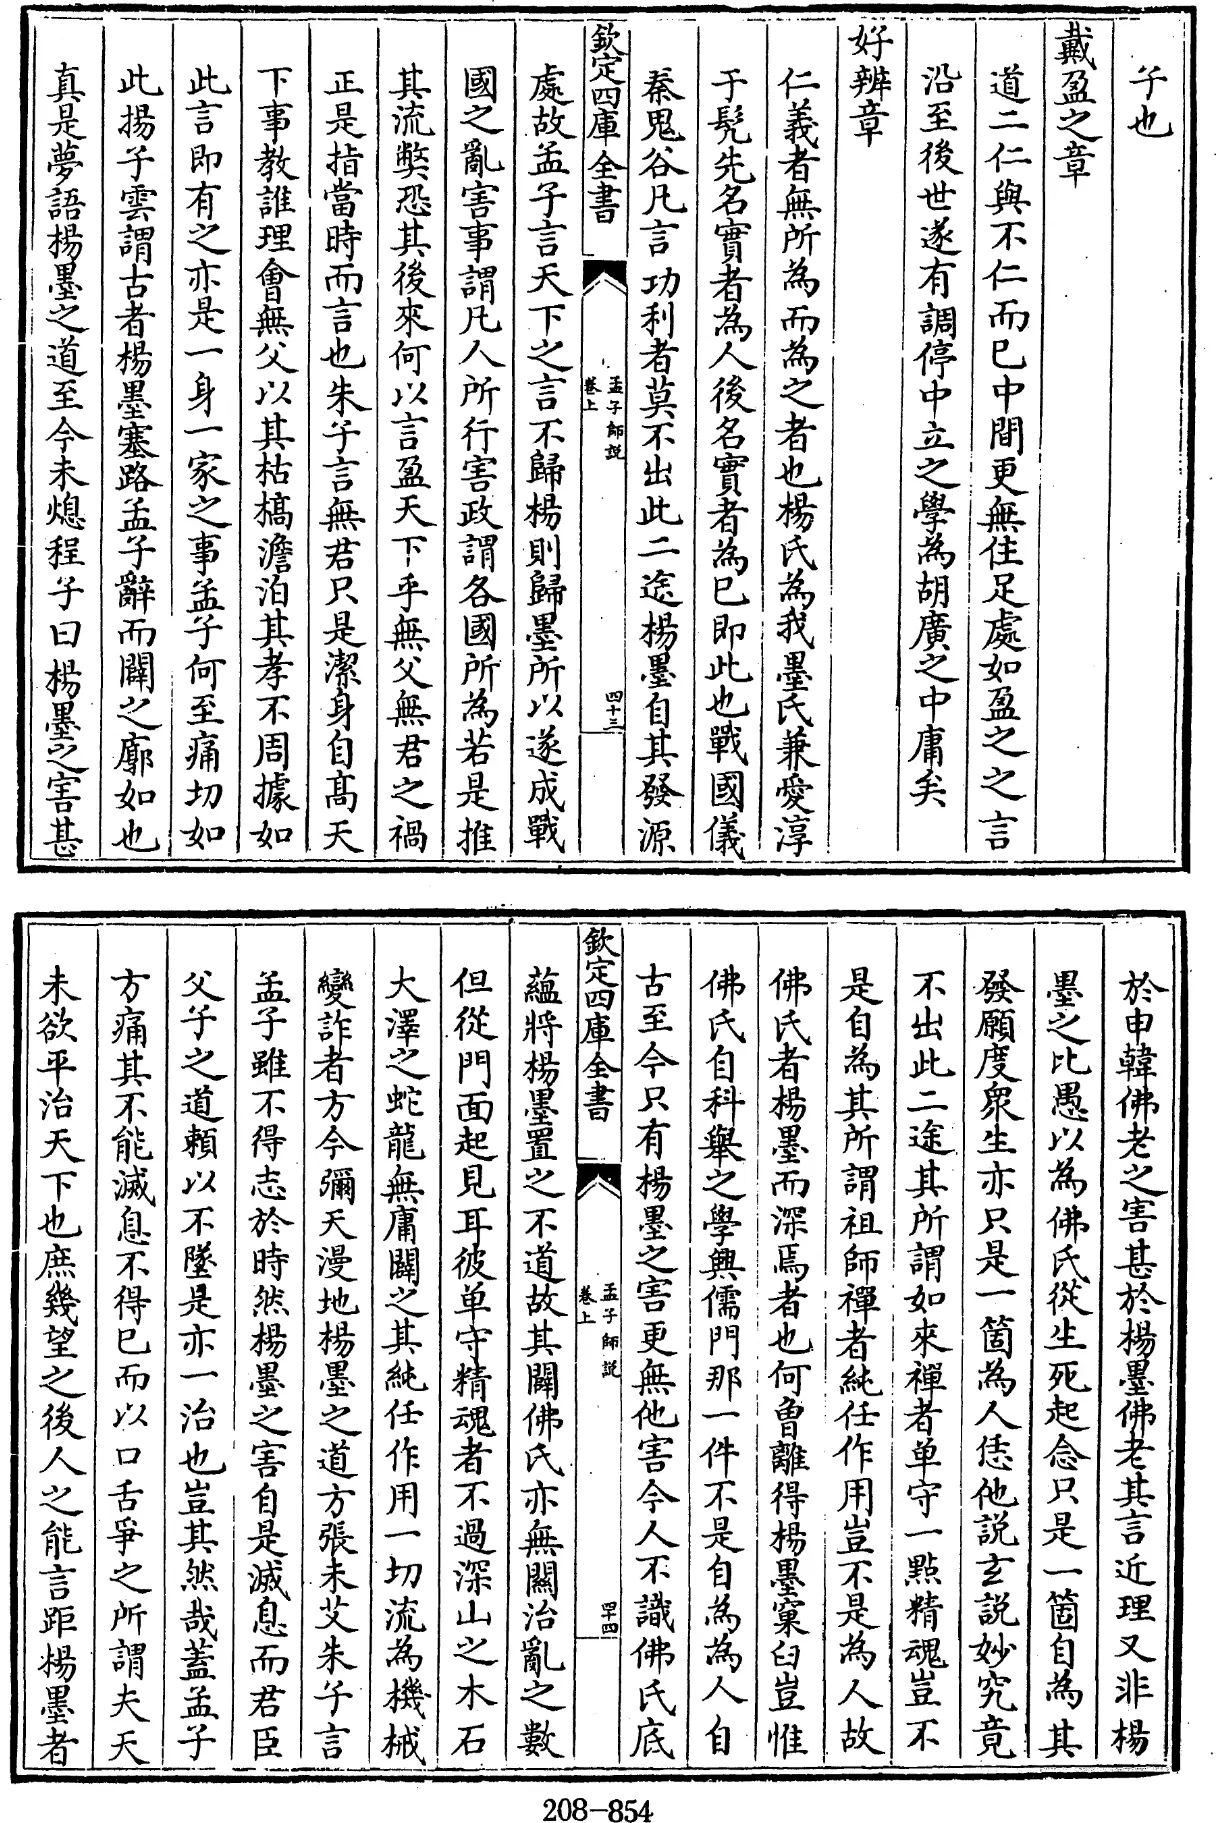 子也
戴盈之章
道二仁與不仁而已中間更無住足處如盈之之言
沿至後世遂有調停中立之學為胡廣之中庸矣
好辨章
仁義者無所為而為之者也楊氏為我墨氏兼愛淳
于髠先名實者為人後名實者為已即此也戰國儀
秦鬼谷凡言功利者莫不出此二途楊墨自其發源
欽定四庫全書
孟子師說
卷上
四十三
處故孟子言天下之言不歸楊則歸墨所以遂成戰
國之亂害事謂凡人所行害政謂各國所為若是推
其流弊恐其後來何以言盈天下乎無父無君之禍
正是指當時而言也朱子言無君只是潔身自高天
下事教誰理會無父以其枯槁澹泊其孝不周據如
此言即有之亦是一身一家之事孟子何至痛切如
此揚子雲謂古者楊墨塞路孟子辭而闢之廓如也
真是夢語楊墨之道至今未熄程子曰楊墨之害甚
於申韓佛老之害甚於楊墨佛老其言近理又非楊
墨之比愚以為佛氏從生死起念只是一箇自為其
發願度衆生亦只是一箇為人恁他說玄說妙究竟
不出此二途其所謂如來禪者单守一點精魂豈不
是自為其所謂祖師禪者純任作用豈不是為人故
佛氏者楊墨而深焉者也何曽離得楊墨窠臼豈惟
佛氏自科舉之學興儒門那一件不是自為為人自
古至今只有楊墨之害更無他害今人不識佛氏底
欽定四庫全書
孟子師說
卷上
四十四
蘊將楊墨置之不道故其闢佛氏亦無關治亂之數
但從門面起見耳彼单守精魂者不過深山之木石
大澤之蛇龍無庸闢之其純任作用一切流為機械
變詐者方今彌天漫地楊墨之道方張未艾朱子言
孟子雖不得志於時然楊墨之害自是滅息而君臣
父子之道賴以不墜是亦一治也豈其然哉蓋孟子
方痛其不能滅息不得已而以口舌爭之所謂夫天
未欲平治天下也庶幾望之後人之能言距楊墨者
208-854